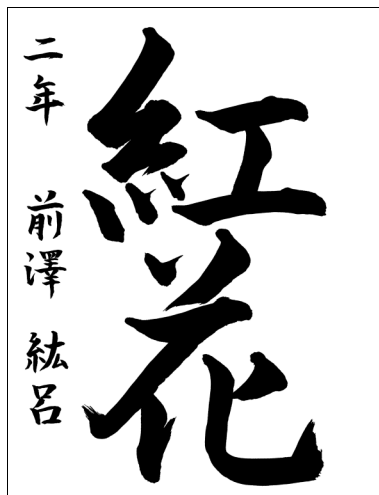 紅花
二年 前澤 紘呂